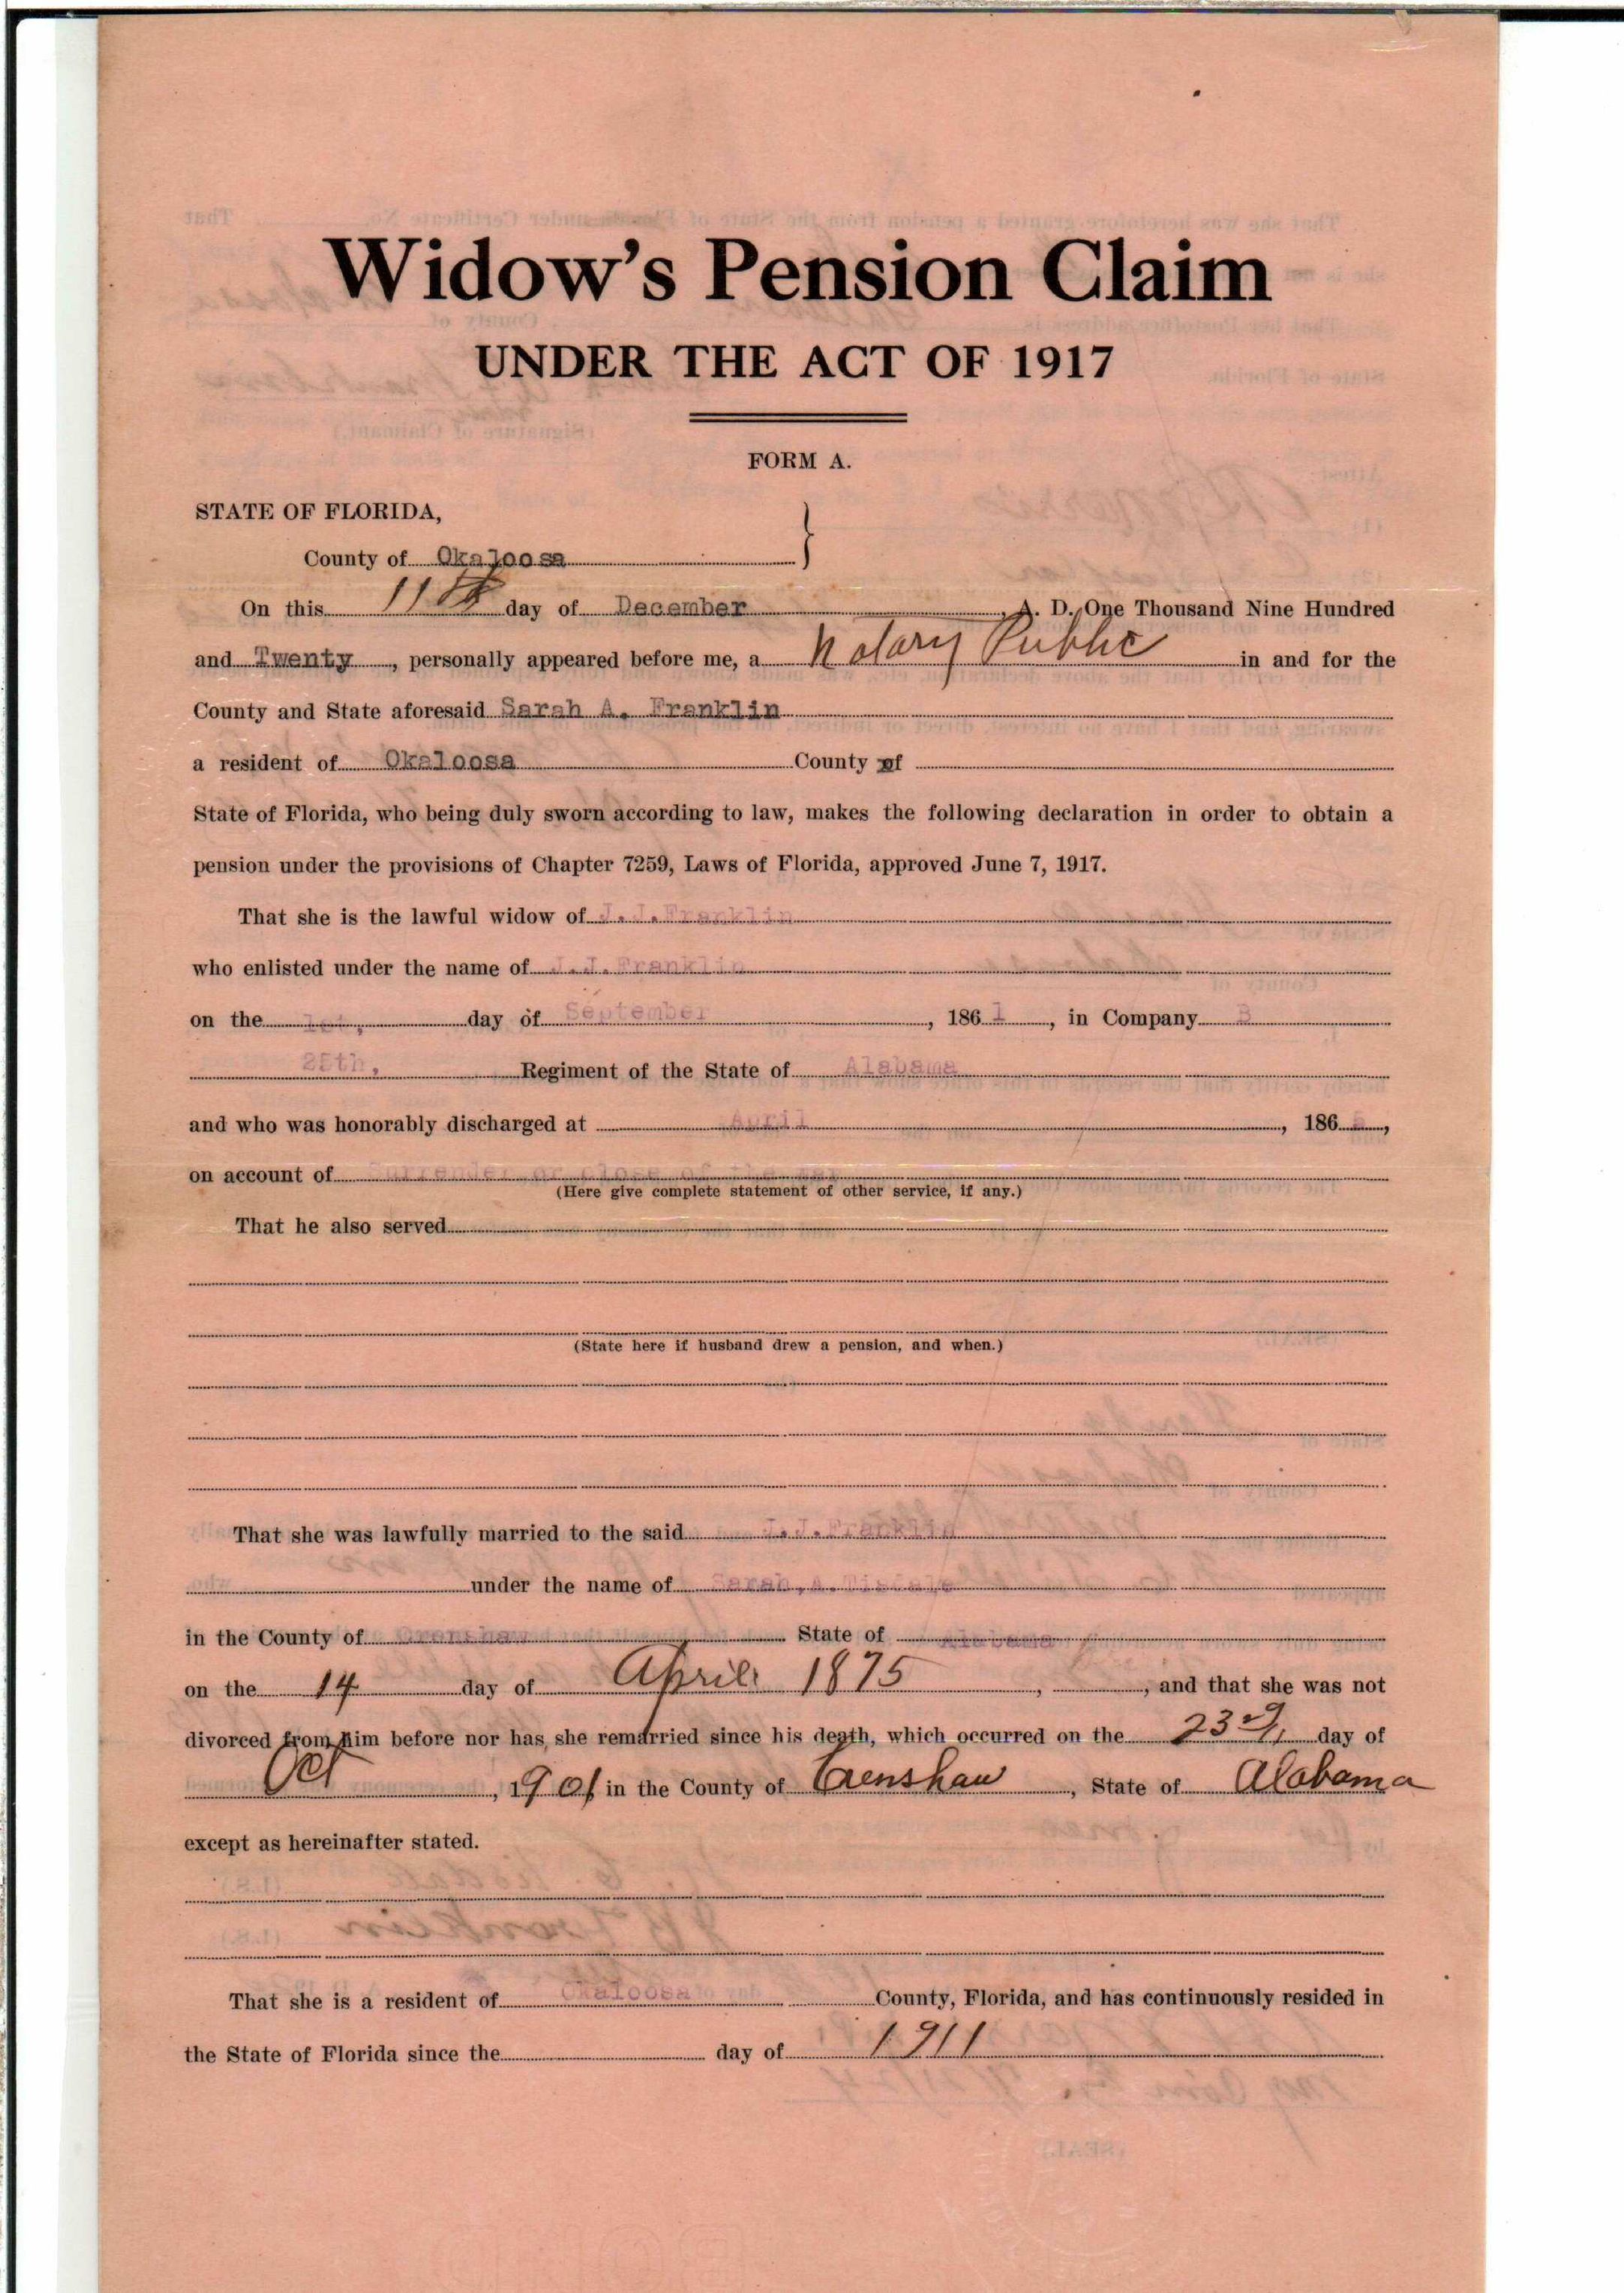 Widow's Pension Claim
UNDER THE ACT OF 1917
FORM A.
STATE OF FLORIDA,
County of Okaloosa
On this 11th day of December, A. D. One Thousand Nine Hundred
and Twenty, personally appeared before me, a Notary Public in and for the
County and State aforesaid Sarah A. Franklin
a resident of Okaloosa County of
State of Florida, who being duly sworn according to law, makes the following declaration in order to obtain a
pension under the provisions of Chapter 7259, Laws of Florida, approved June 7, 1917.
That she is the lawful widow of J.J.Franklin
who enlisted under the name of J.J.Franklin
on the 1st, day of September, 1861, in Company B
25th, Regiment of the State of Alabama
and who was honorably discharged at April, 186,
on account of Surrender or close of the war
(Here give complete statement of other service, if any.)
That he also served
(State here if husband drew a pension, and when.)
That she was lawfully married to the said J.J.Franklin
under the name of Sarah,A.Tisdale
in the County of Crenshaw State of Alabama
on the 14 day of April 1875, , and that she was not
divorced from him before nor has she remarried since his death, which occurred on the 23rd, day of
Oct, 1901 in the County of Crenshaw, State of Alabama
except as hereinafter stated.
That she is a resident of Okaloosa County, Florida, and has continuously resided in
the State of Florida since the day of 1911